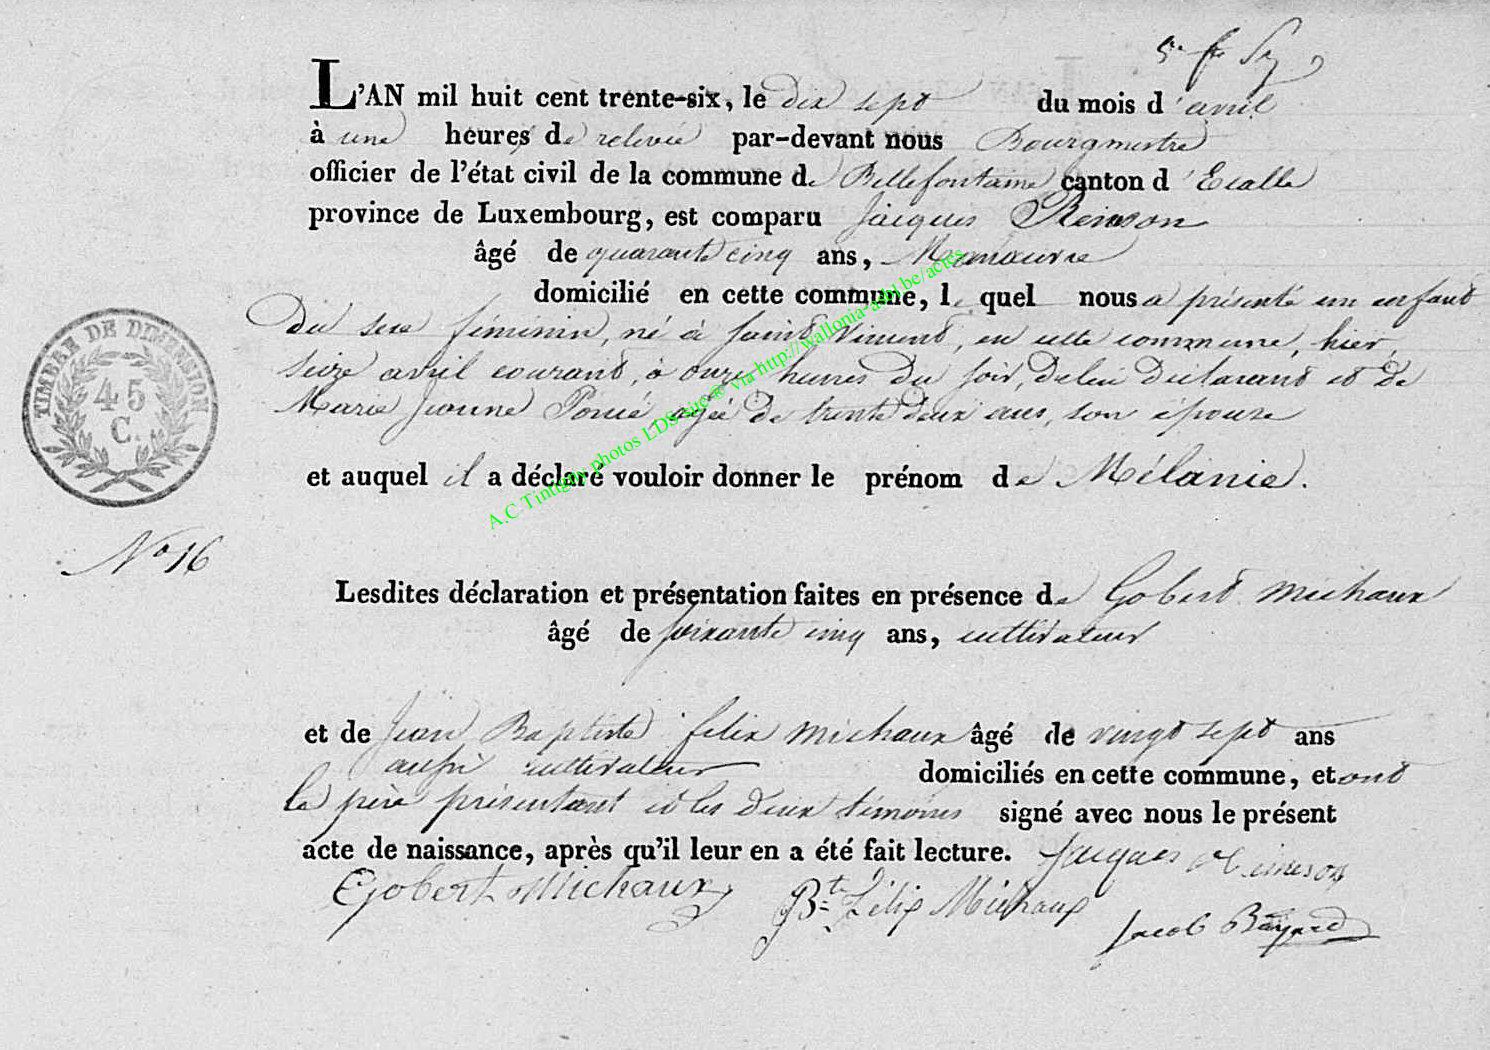 L'AN mil huit cent trente-six, le dix sept du mois d'avril
à une heures de relevée par-devant nous Bourgmestre
officier de l'état civil de la commune de Bellefontaine canton d'Etalle
province de Luxembourg, est comparu Jacques
âgé de quarante cinq ans, Manœuvre
domicilié en cette commune, le quel nous a présenté un enfant
Du sexe féminin, né à Saint Vincent, en cette commune, hier,
seize avril courant, à onze heures du soir, de lui déclarant et de
Marie Jeanne âgée de trente deux ans, son épouse
et auquel il a déclaré vouloir donner le prénom de Mélanie.
TIMBRE DE DIMENSION
45
C.
No 16
Lesdites déclaration et présentation faites en présence de Gobert Michaux
âgé de soixante cinq ans, cultivateur
et de Jean Baptiste felix michaux âgé de vingt sept ans
aussi cultivateur domiciliés en cette commune, et ont
le père présentant et les deux témoins signé avec nous le présent
acte de naissance, après qu'il leur en a été fait lecture. Jacques
Gobert Michaux Bte Félix Michaux
Jacob Bayard
A.C Tintigny photos LDS sur ® via http://wallonia-asbl.be/actes